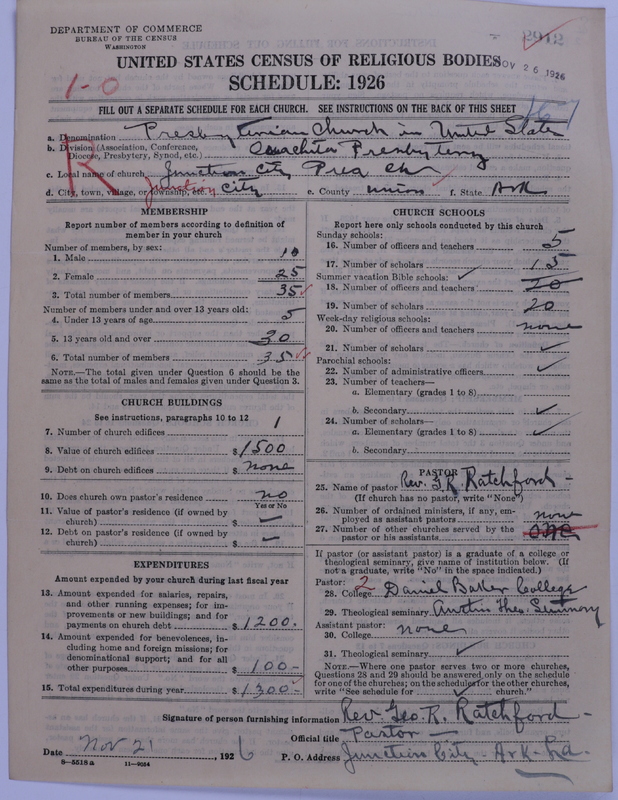 DEPARTMENT OF COMMERCE
BUREAU OF THE CENSUS
WASHINGTON
UNITED STATES CENSUS OF RELIGIOUS BODIES
NOV 26 1926
SCHEDULE: 1926
1-0
FILL OUT A SEPARATE SCHEDULE FOR EACH CHURCH. SEE INSTRUCTIONS ON THE BACK OF THIS SHEET
R
a. Denomination Presbyterian Church in United States
b. Division (Association, Conference, Diocese, Presbytery, Synod, etc.) Ouachita Presbytery
c. Local name of church Junction City Pres Ch
d. City, town, village, or township, etc. Junction City e. County Union f. State Ark
MEMBERSHIP
Report number of members according to definition of member in your church
Number of members, by sex:
1. Male 10
2. Female 25
3. Total number of members 35
Number of members under and over 13 years old:
4. Under 13 years of age 5
5. 13 years old and over 30
6. Total number of members 35
NOTE.—The total given under Question 6 should be same as the total of males and females given under Question 3.
CHURCH BUILDINGS
See instructions, paragraphs 10 to 12
7. Number of church edifices 1
8. Value of church edifices $1500
9. Debt on church edifices $ none
10. Does church own pastor's residence no
Yes or No
11. Value of pastor's residence (if owned by church) $
12. Debt on pastor's residence (if owned by church) $
EXPENDITURES
Amount expended by your church during last fiscal year
13. Amount expended for salaries, repairs, and other running expenses; for improvements or new buildings; and for payments on church debt $1200.
14. Amount expended for benevolences, including home and foreign missions; for denominational support; and for all other purposes $100-
15. Total expenditures during year $1300-
CHURCH SCHOOLS
Report here only schools conducted by this church
Sunday schools:
16. Number of officers and teachers 5
17. Number of scholars 15
Summer vacation Bible schools:
18. Number of officers and teachers 20
19. Number of scholars 20
Week-day religious schools:
20. Number of officers and teachers none
21. Number of scholars
Parochial schools:
22. Number of administrative officers
23. Number of teachers—
a. Elementary (grades 1 to 8)
b. Secondary
24. Number of scholars—
a. Elementary (grades 1 to 8)
b. Secondary
PASTOR
25. Name of pastor Rev. G. R. Ratchford
(If church has no pastor, write "None")
26. Number of ordained ministers, if any, employed as assistant pastors none
27. Number of other churches served by the pastor or his assistants one
If pastor (or assistant pastor) is a graduate of a college or theological seminary, give name of institution below. (If not a graduate, write "No" in the space indicated.)
Pastor: 2
28. College Daniel Baker College
29. Theological seminary Austin Theo. Seminary
Assistant pastor:
30. College none
31. Theological seminary
NOTE.—Where one pastor serves two or more churches, Questions 28 and 29 should be answered only on the schedule for one of the churches; on the schedules for the other churches, write "See schedule for church."
Signature of person furnishing information Rev Geo. R. Ratchford
Official title Pastor
Date Nov 21 1926
P. O. Address Junction City - Ark-La.
8—5518a 11—9054